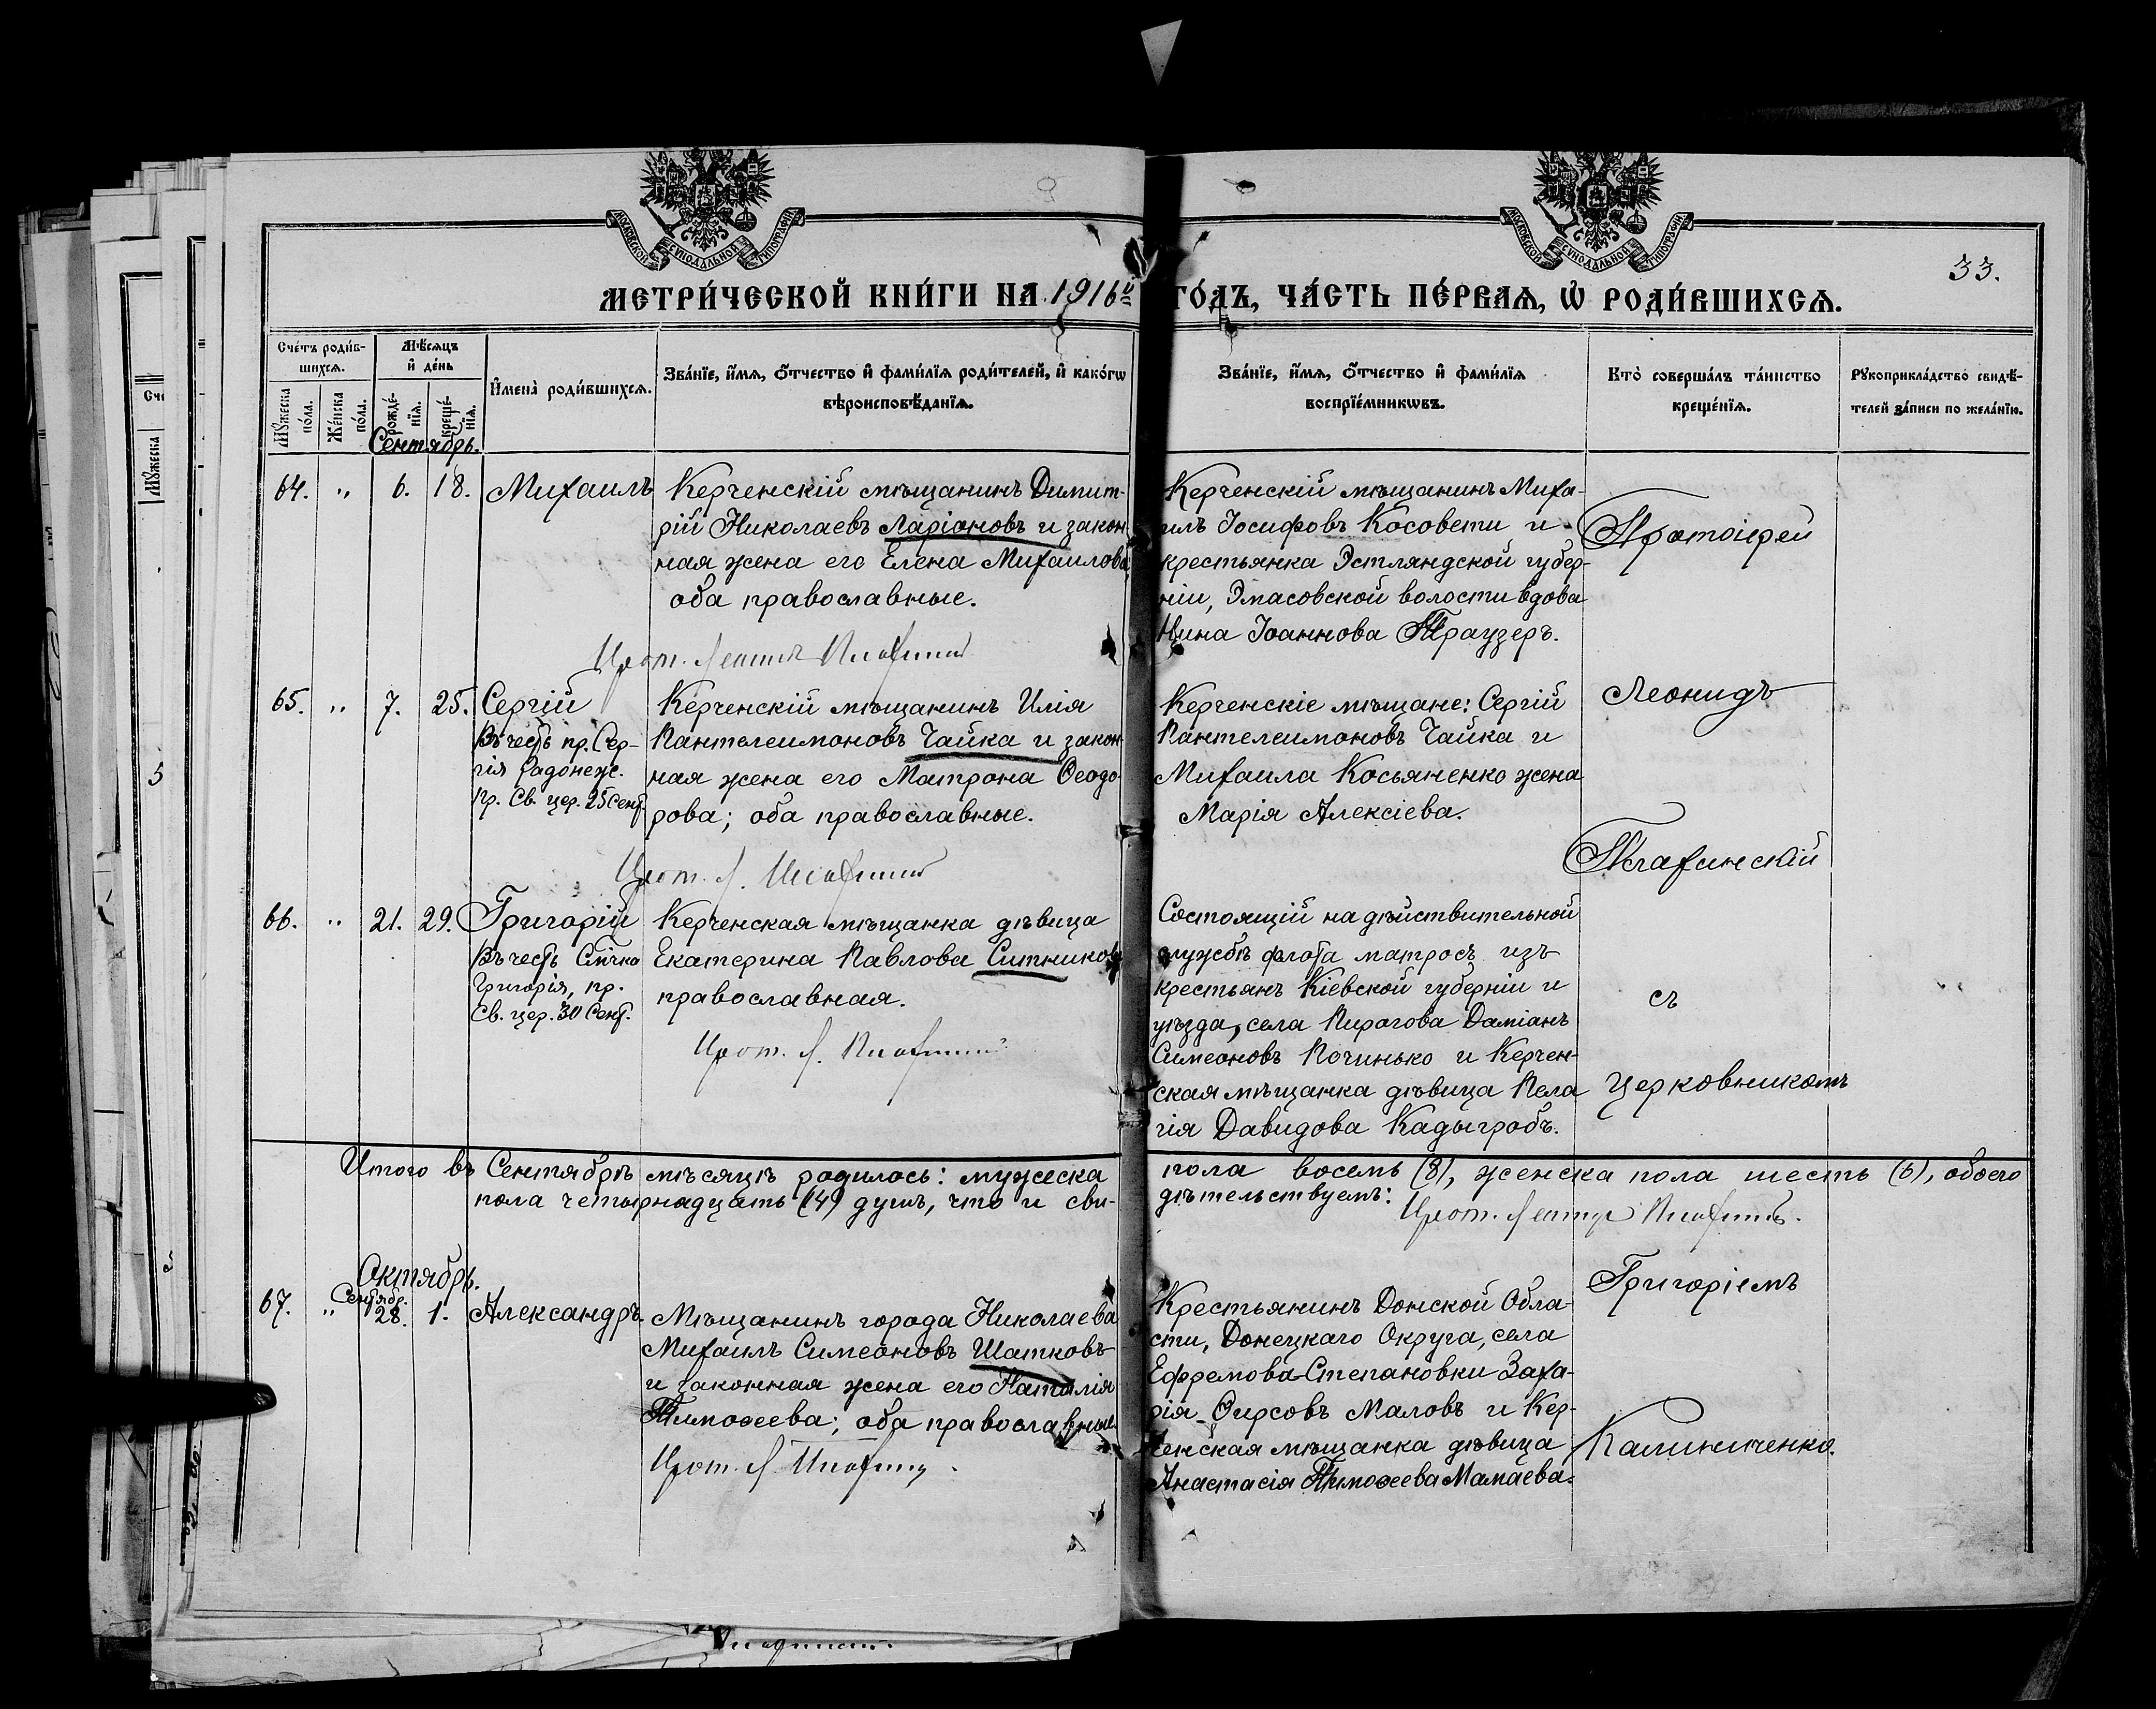 МОСКОВСКОЙ СУНОДАЛЬНОЙ ТИПОГРАФІИ
МОСКОВСКОЙ СУНОДАЛЬНОЙ ТИПОГРАФІИ
33.
МЕТРИ́ЧЕСКОЙ КНИ́ГИ НА 1916й ГО́ДЪ, ЧА́СТЬ ПЕ́РВАЯ, Ѡ҆ РОДИ́ВШИХСЯ.
Сче́тъ роди́в-
шихся.
Мѣ́сяцъ
и҆ де́нь
Мꙋ́жеска
по́ла.
Же́нска
по́ла.
рожде́-
нїя.
креще́-
нїя.
И҆мена̀ роди́вшихся.
Зва́нїе, и҆́мя, ѻ҆́тчество и҆ фами́лїя роди́телей, и҆ како́гѡ
вѣроисповѣ́данїя.
Зва́нїе, и҆́мя, ѻ҆́тчество и҆ фами́лїя
воспрїе́мникѡвъ.
Кто̀ соверша́лъ та́инство
креще́нїя.
Рꙋкоприкла́дство свидѣ́-
телей за́писи по жела́нїю.
Сентябрь.
64. " 6. 18. Михаилъ
Керченскій мѣщанинъ Димит-
рій Николаевъ Ларіоновъ и закон-
ная жена его Елена Михаилова,
оба православные.
Керченскій мѣщанинъ Миха-
илъ Іосифовъ Косовети и
крестьянка Эстляндской губер-
ніи, Эмасовской волости вдова
Нина Іоаннова Траузеръ.
Протоіерей
Прот. Леонидъ
65. " 7. 25. Сергій
Въ честь пр. Сер-
гія Радонеж.
Пр. Св. цер. 25 Сент.
Керченскій мѣщанинъ Илія
Пантелеимоновъ Чайка и закон-
ная жена его Матрона Ѳеодо-
рова; оба православные.
Керченскіе мѣщане: Сергій
Пантелеимоновъ Чайка и
Михаила Косьяненко жена
Марія Алексіева.
Леонидъ
Прот. Л.
66. " 21. 29. Григорій
Въ честь Сщмчка
Григорія, пр.
Св. цер. 30 Сент.
Керченская мѣщанка дѣвица
Екатерина Павлова Ситникова
православная.
Состоящій на дѣйствительной
службѣ флота матросъ изъ
крестьянъ Кіевской губерніи и
уѣзда, села Пирогова Даміанъ
Симеоновъ Починько и Керчен-
ская мѣщанка дѣвица Пела
гія Давидова Кадыгробъ.
съ
церковникомъ
Прот. Л.
Итого въ Сентябрѣ мѣсяцѣ родилось: мужеска пола восемь (8), женска пола шесть (6), обоего
пола четырнадцать (14) душъ, что и сви-дѣтельствуемъ:
Прот. Леонидъ
Октябрь.
67. " Сентябр. 28. 1. Александръ.
Мѣщанинъ города Николаева
Михаилъ Симеоновъ Шатковъ
и законная жена его Наталія
Тимоѳеева; оба православные.
Крестьянинъ Донской Обла-
сти, Донецкаго Округа, села
Ефремова-Степановки Заха-
рія Ѳирсовъ Маловъ и Кер-
ченская мѣщанка дѣвица
Анастасія Тимоѳеева Мамаева.
Григоріемъ
Калиниченко.
Прот. Л.